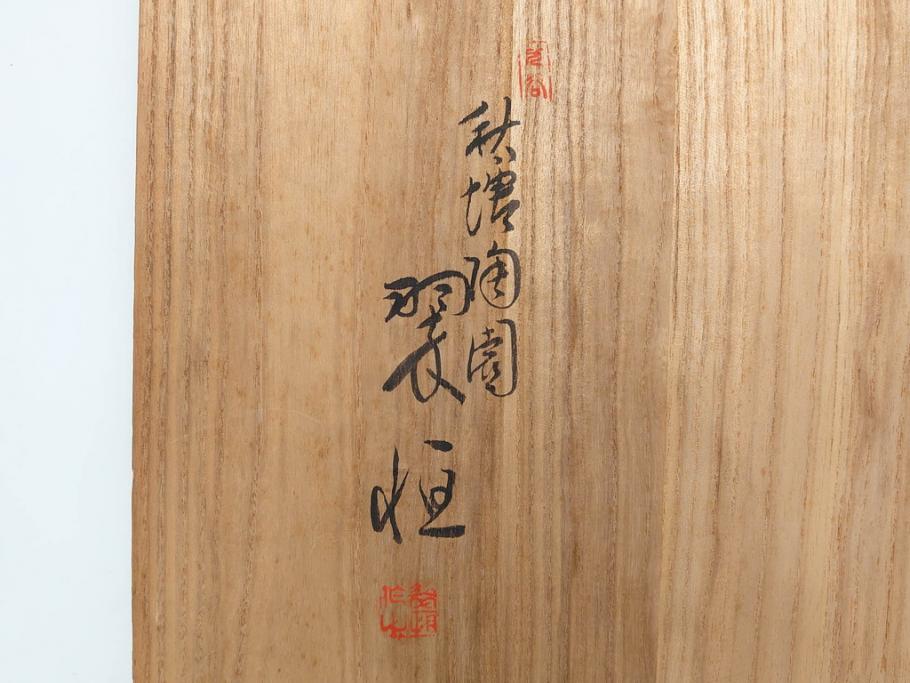 秋塘陶園
翠恒